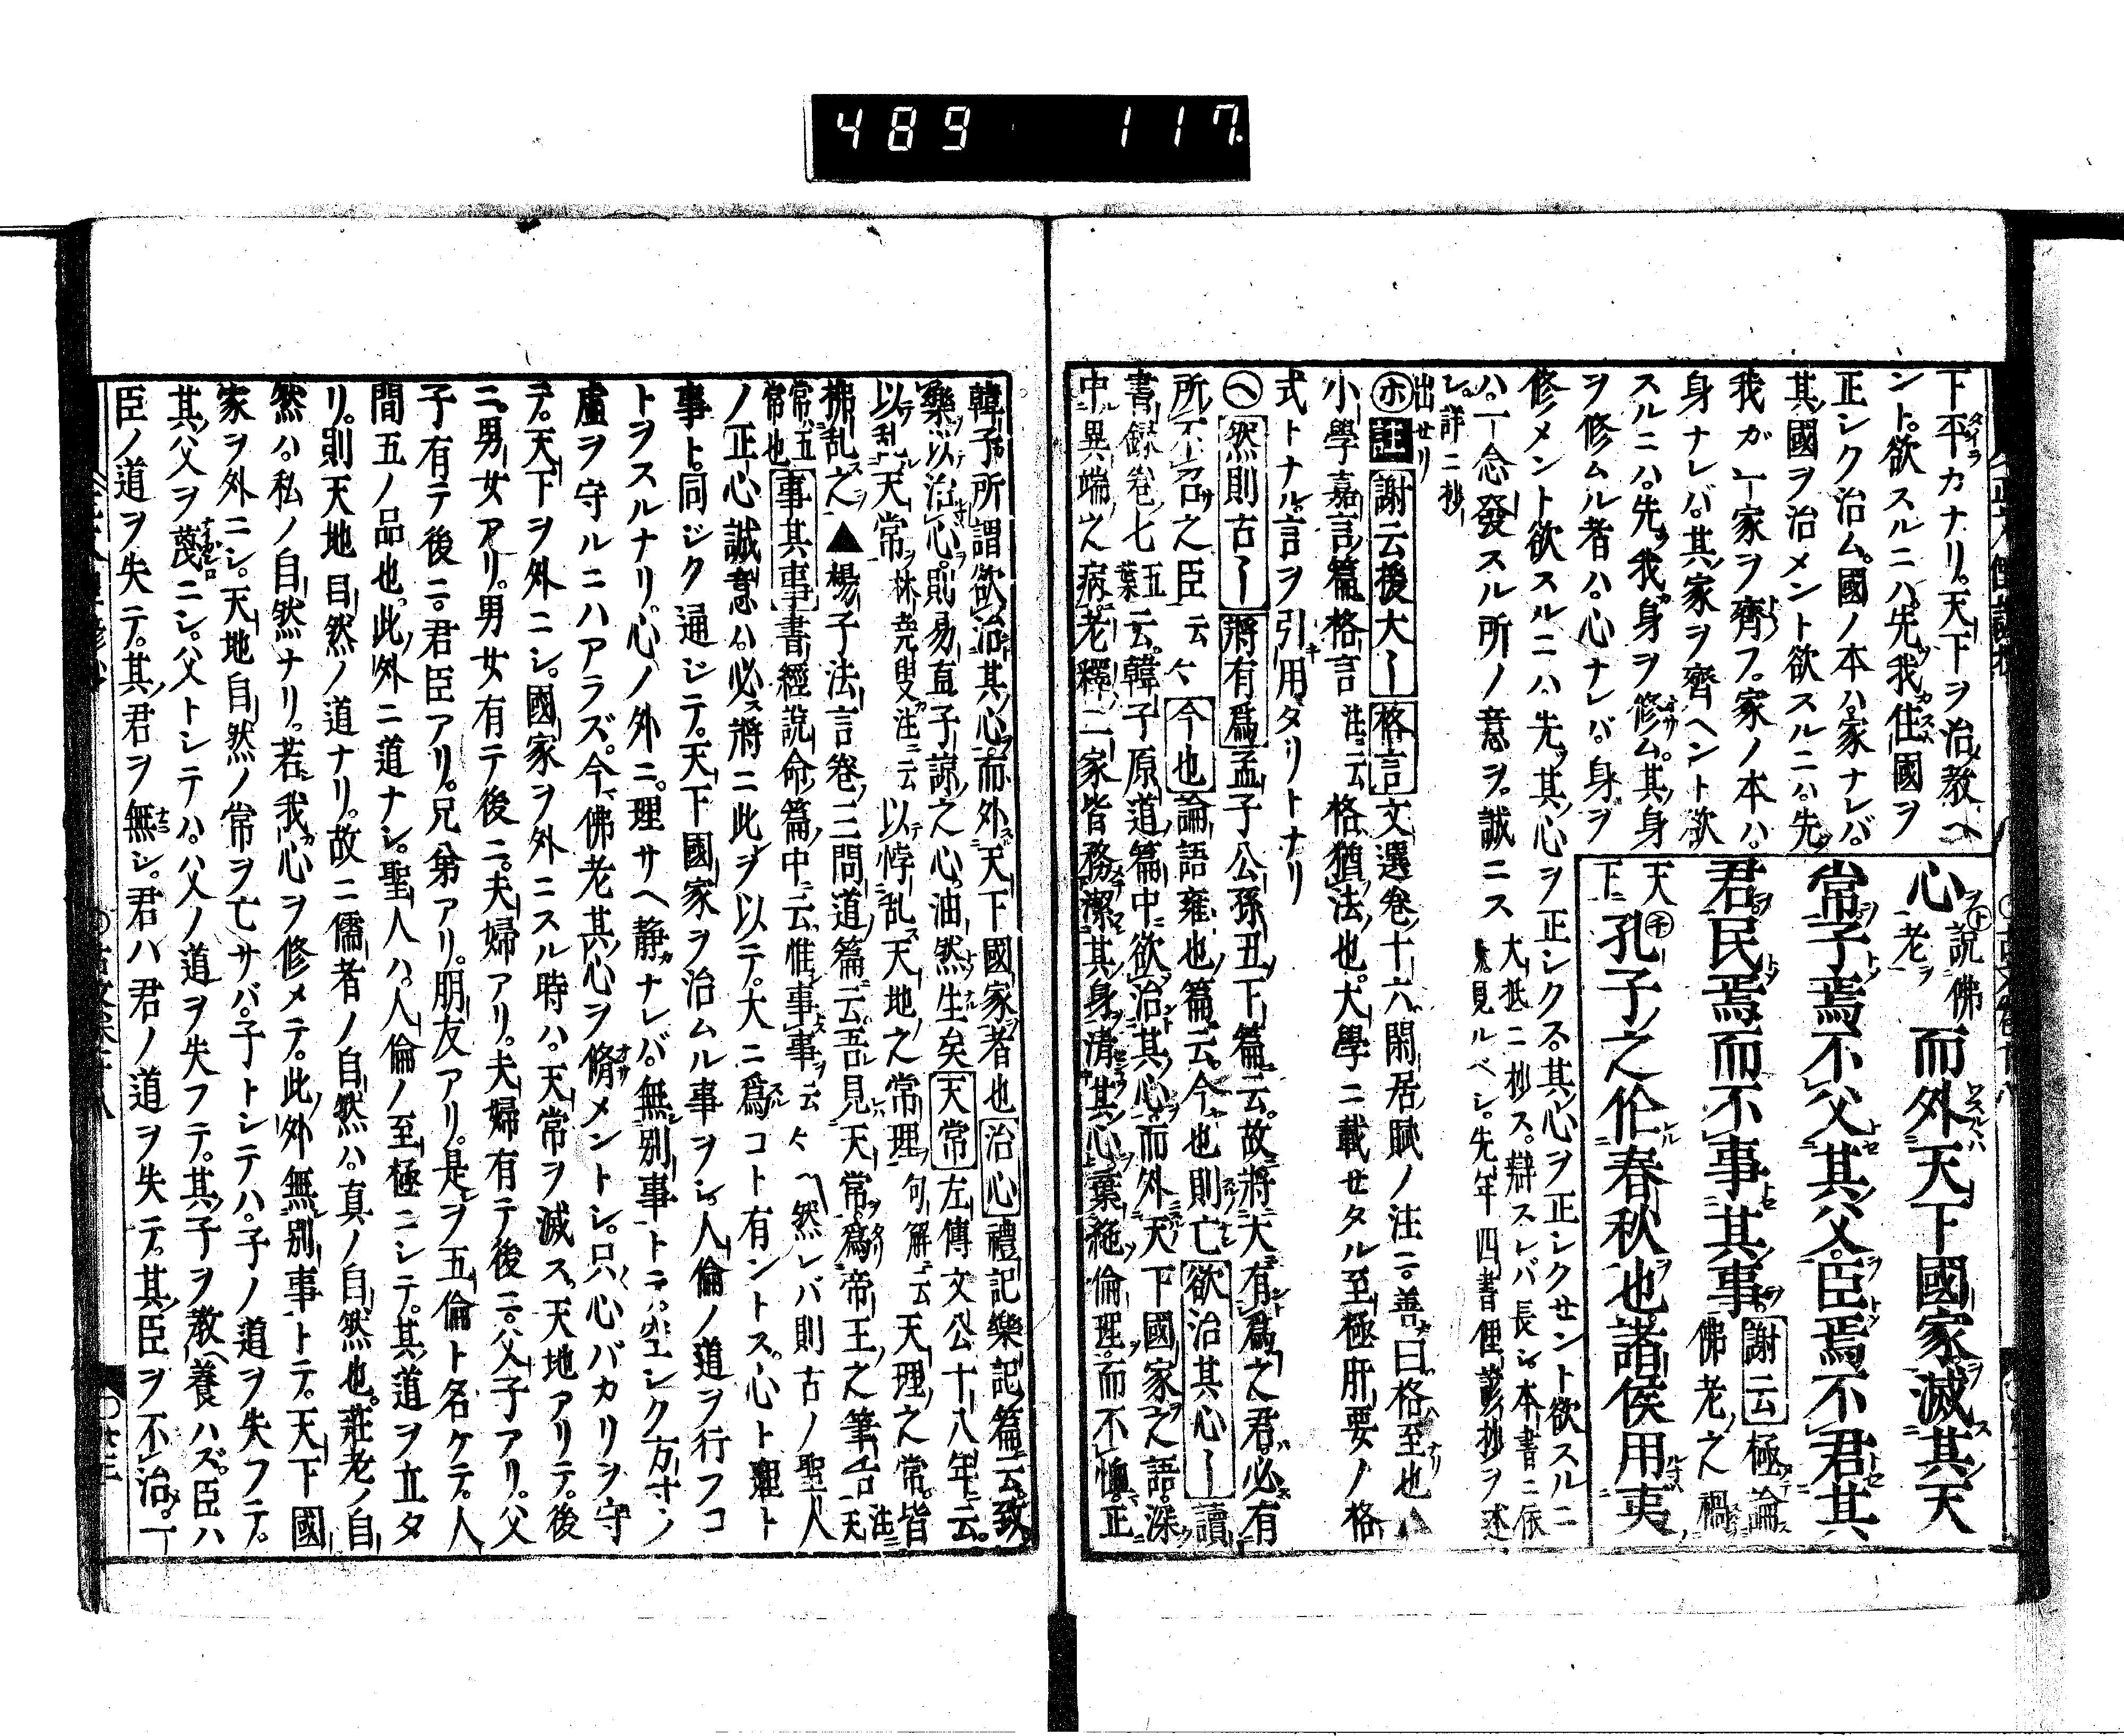 489 117
下平カナリ。天下ヲ治メ教ヘ
ント。欲スルニハ。先ツ我住國ヲ
正シク治ム。國ノ本ハ。家ナレバ。
其國ヲ治メント欲スルニハ。先ツ
我ガ一家ヲ齊フ。家ノ本ハ。
身ナレバ。其家ヲ齊ヘント欲
スルニハ。先ツ我身ヲ修ム。其身
ヲ修ムル者ハ。心ナレバ。身ヲ
修メント欲スルニハ。先ツ其心ヲ正シクス。其心ヲ正シクセント欲スルニ
ハ。一念發スル所ノ意ヲ。誠ニス
大抵ニ抄ス。辯スレバ長シ。本書ニ依
見ルベシ。先年四書俚諺抄ヲ述
詳ニ抄
出セリ
心
說佛
老
而外天下國家滅其天
常子焉不父其父臣焉不君其
君民焉而不事其事
謝云極論
佛老之禍
天
下
孔子之作春秋也諸侯用夷
ホ註謝云後大〡格言文選卷十六閑居賦ノ注ニ。善曰格至也
小學嘉言篇格言注云格猶法也。大學ニ載セタル至極肝要ノ格
式トナル。言ヲ引用タリトナリ
ヘ然則古〡將有爲孟子公孫丑下篇云。故將大有爲之君。必有
所不召之臣云〻今也論語雍也篇云。今也則亡欲治其心〡讀
書録卷七五葉云。韓子原道篇中欲治其心。而外天下國家之語。深
中異端之病。老釋二家皆務潔其身清其心。棄絶倫理。而不恤。正
韓子所謂欲治其心。而外天下國家者也治心禮記樂記篇云。致
樂以治心。則易直子諒之心。油然生矣天常左傳文公十八年云。
以乱天常林堯叟注云以悖乱天地之常理句解云天理之常。皆
拂乱之▲楊子法言卷三問道篇云。吾見天常。爲帝王之筆舌注天
常五
常也事其事書經說命篇中云。惟事事云〻ヘ然レバ則古ノ聖人
ノ正心誠意ハ。必ス將ニ此ヲ以テ。大ニ爲コト有ントス。心ト理ト
事ト。同ジク通ジテ。天下國家ヲ治ムル事ヲシ。人倫ノ道ヲ行フコ
トヲスルナリ。心ノ外ニ。理サヘ静カナレバ。無別事トテ。空シク方寸ノ
盧ヲ守ルニハアラズ。今佛老其心ヲ脩メントシ。只心バカリヲ守
テ。天下ヲ外ニシ。國家ヲ外ニスル時ハ。天常ヲ滅ス。天地アリテ。後
ニ。男女アリ。男女有テ後ニ。夫婦アリ。夫婦有テ後ニ。父子アリ。父
子有テ後ニ。君臣アリ。兄弟アリ。朋友アリ。是ヲ五倫ト名ケテ。人
間五ノ品也。此外ニ道ナシ。聖人ハ。人倫ノ至極ニシテ。其道ヲ立タ
リ。則天地自然ノ道ナリ。故ニ儒者ノ自然ハ。真ノ自然也。莊老ノ自
然ハ。私ノ自然ナリ。若シ我心ヲ修メテ。此外無別事トテ。天下國
家ヲ外ニシ。天地自然ノ常ヲ亡サバ。子トシテハ。子ノ道ヲ失フテ。
其父ヲ蔑ニシ。父トシテハ。父ノ道ヲ失フテ。其子ヲ教ヘ養ハズ。臣ハ
臣ノ道ヲ失テ。其君ヲ無シ。君ハ君ノ道ヲ失テ。其臣ヲ不治。一